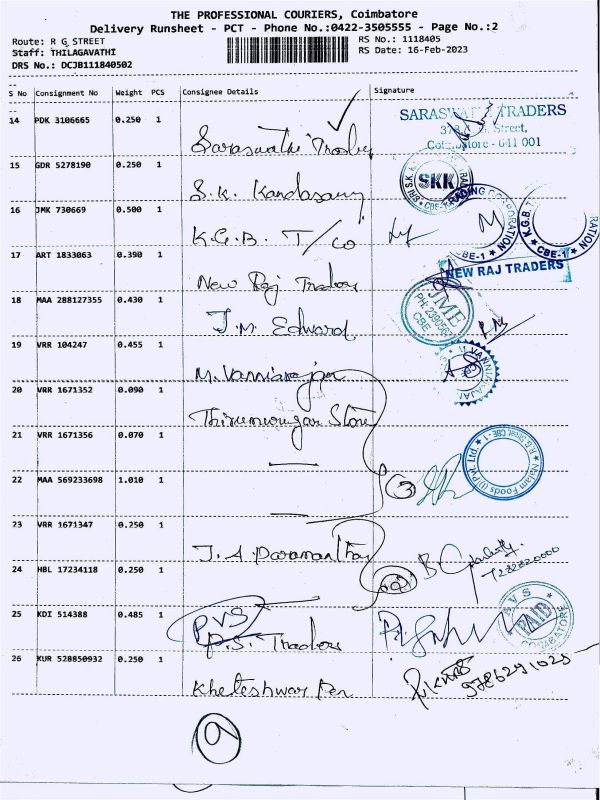 THE PROFESSIONAL COURIERS, Coimbatore
Delivery Runsheet - PCT - Phone No.:0422-3505555 - Page No.:2
Route: R G STREET
RS No.: 1118405
Staff: THILAGAVATHI
RS Date: 16-Feb-2023
DRS No.: DCJB111840502
S No Consignment No Weight PCS Consignee Details Signature
14 PDK 3106665 0.250 1
SARASWATHI TRADERS
Street,
Coimbatore - 641 001
15 GDR 5278190 0.250 1
S.K. Kandasamy
SKK
16 JMK 730669 0.500 1
K.G.B. T/Co
TRADING CORPORATION
CBE-1
K.G.B. T
CBE-1
17 ART 1833063 0.390 1
New Raj Traders
NEW RAJ TRADERS
18 MAA 288127355 0.430 1
J.M. Edward
JME
CBE
19 VRR 104247 0.455 1
M. Vanniarajan
20 VRR 1671352 0.090 1
Thirumurugan Store
21 VRR 1671356 0.070 1
R.G. Street, CBE - 1
Nalam Foods (I) Pvt. Ltd.
22 MAA 569233698 1.010 1
3
23 VRR 1671347 0.250 1
24 HBL 17234118 0.250 1
25 KDI 514388 0.485 1
PVS
P.S. Traders
PAID
COIMBATORE
26 KUR 528850932 0.250 1
Kheteshwar Pen
9786291025
9